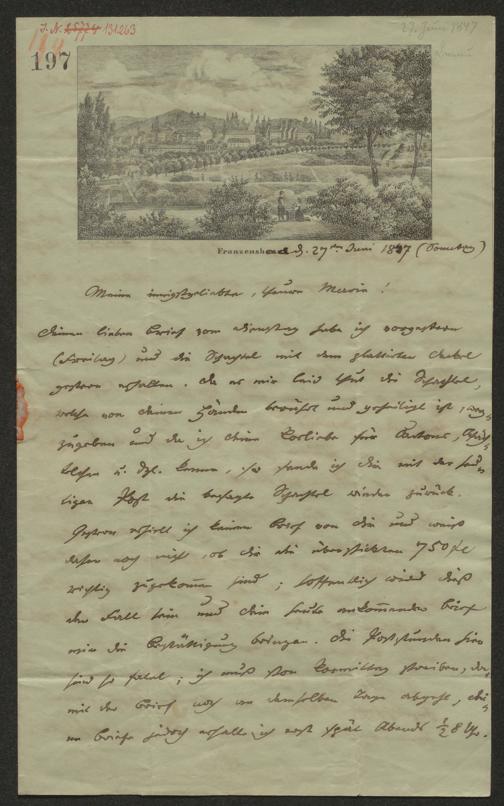 I. N. 131.263
27. Juni 1847
197
Franzensbad d. 27ten Juni 1847 (Sonntag)
Meine innigstgeliebte, theure Marie!
Deinen lieben Brief vom Dienstag habe ich vorgestern
(Freitag) und die Schachtel mit dem Deckel
gestern erhalten. Da es mir leid thut die Schachtel,
welche von deinen Händen berührt und geheiligt ist, weg-
zugeben und da ich deine Vorliebe für Cartons,
u. dgl. kenne, so sende ich dir mit der heu-
tigen Post die besagte Schachtel wieder zurück.
Gestern erhielt ich keinen Brief von dir und weiß
daher noch nicht, ob dir die überschickten 750
richtig zugekommen sind; hoffentlich wird dieß
der Fall sein und dein heute ankommender Brief
mir die Bestättigung bringen. Die Poststunden hier
sind so fatal; ich muß schon Vormittag schreiben, da-
mit der Brief noch an demselben Tage abgeht, dei-
ne Briefe jedoch erhalte ich erst spät Abends ½ 8 Uhr.